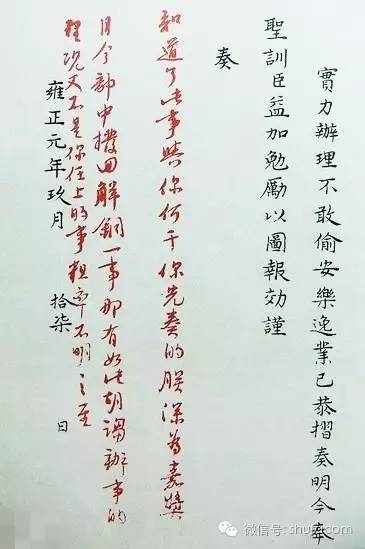 實力辦理不敢偷安樂逸業已恭摺奏明今奉
聖訓臣益加勉厲以圖報効謹
奏
知道了此事與你何干你先奏的朕深為嘉獎
目今部中撥回解銅一事那有如此胡謅辦事的
理況又不是你任上的事粗率不明之至
雍正元年玖月 拾柒 日
微信号: